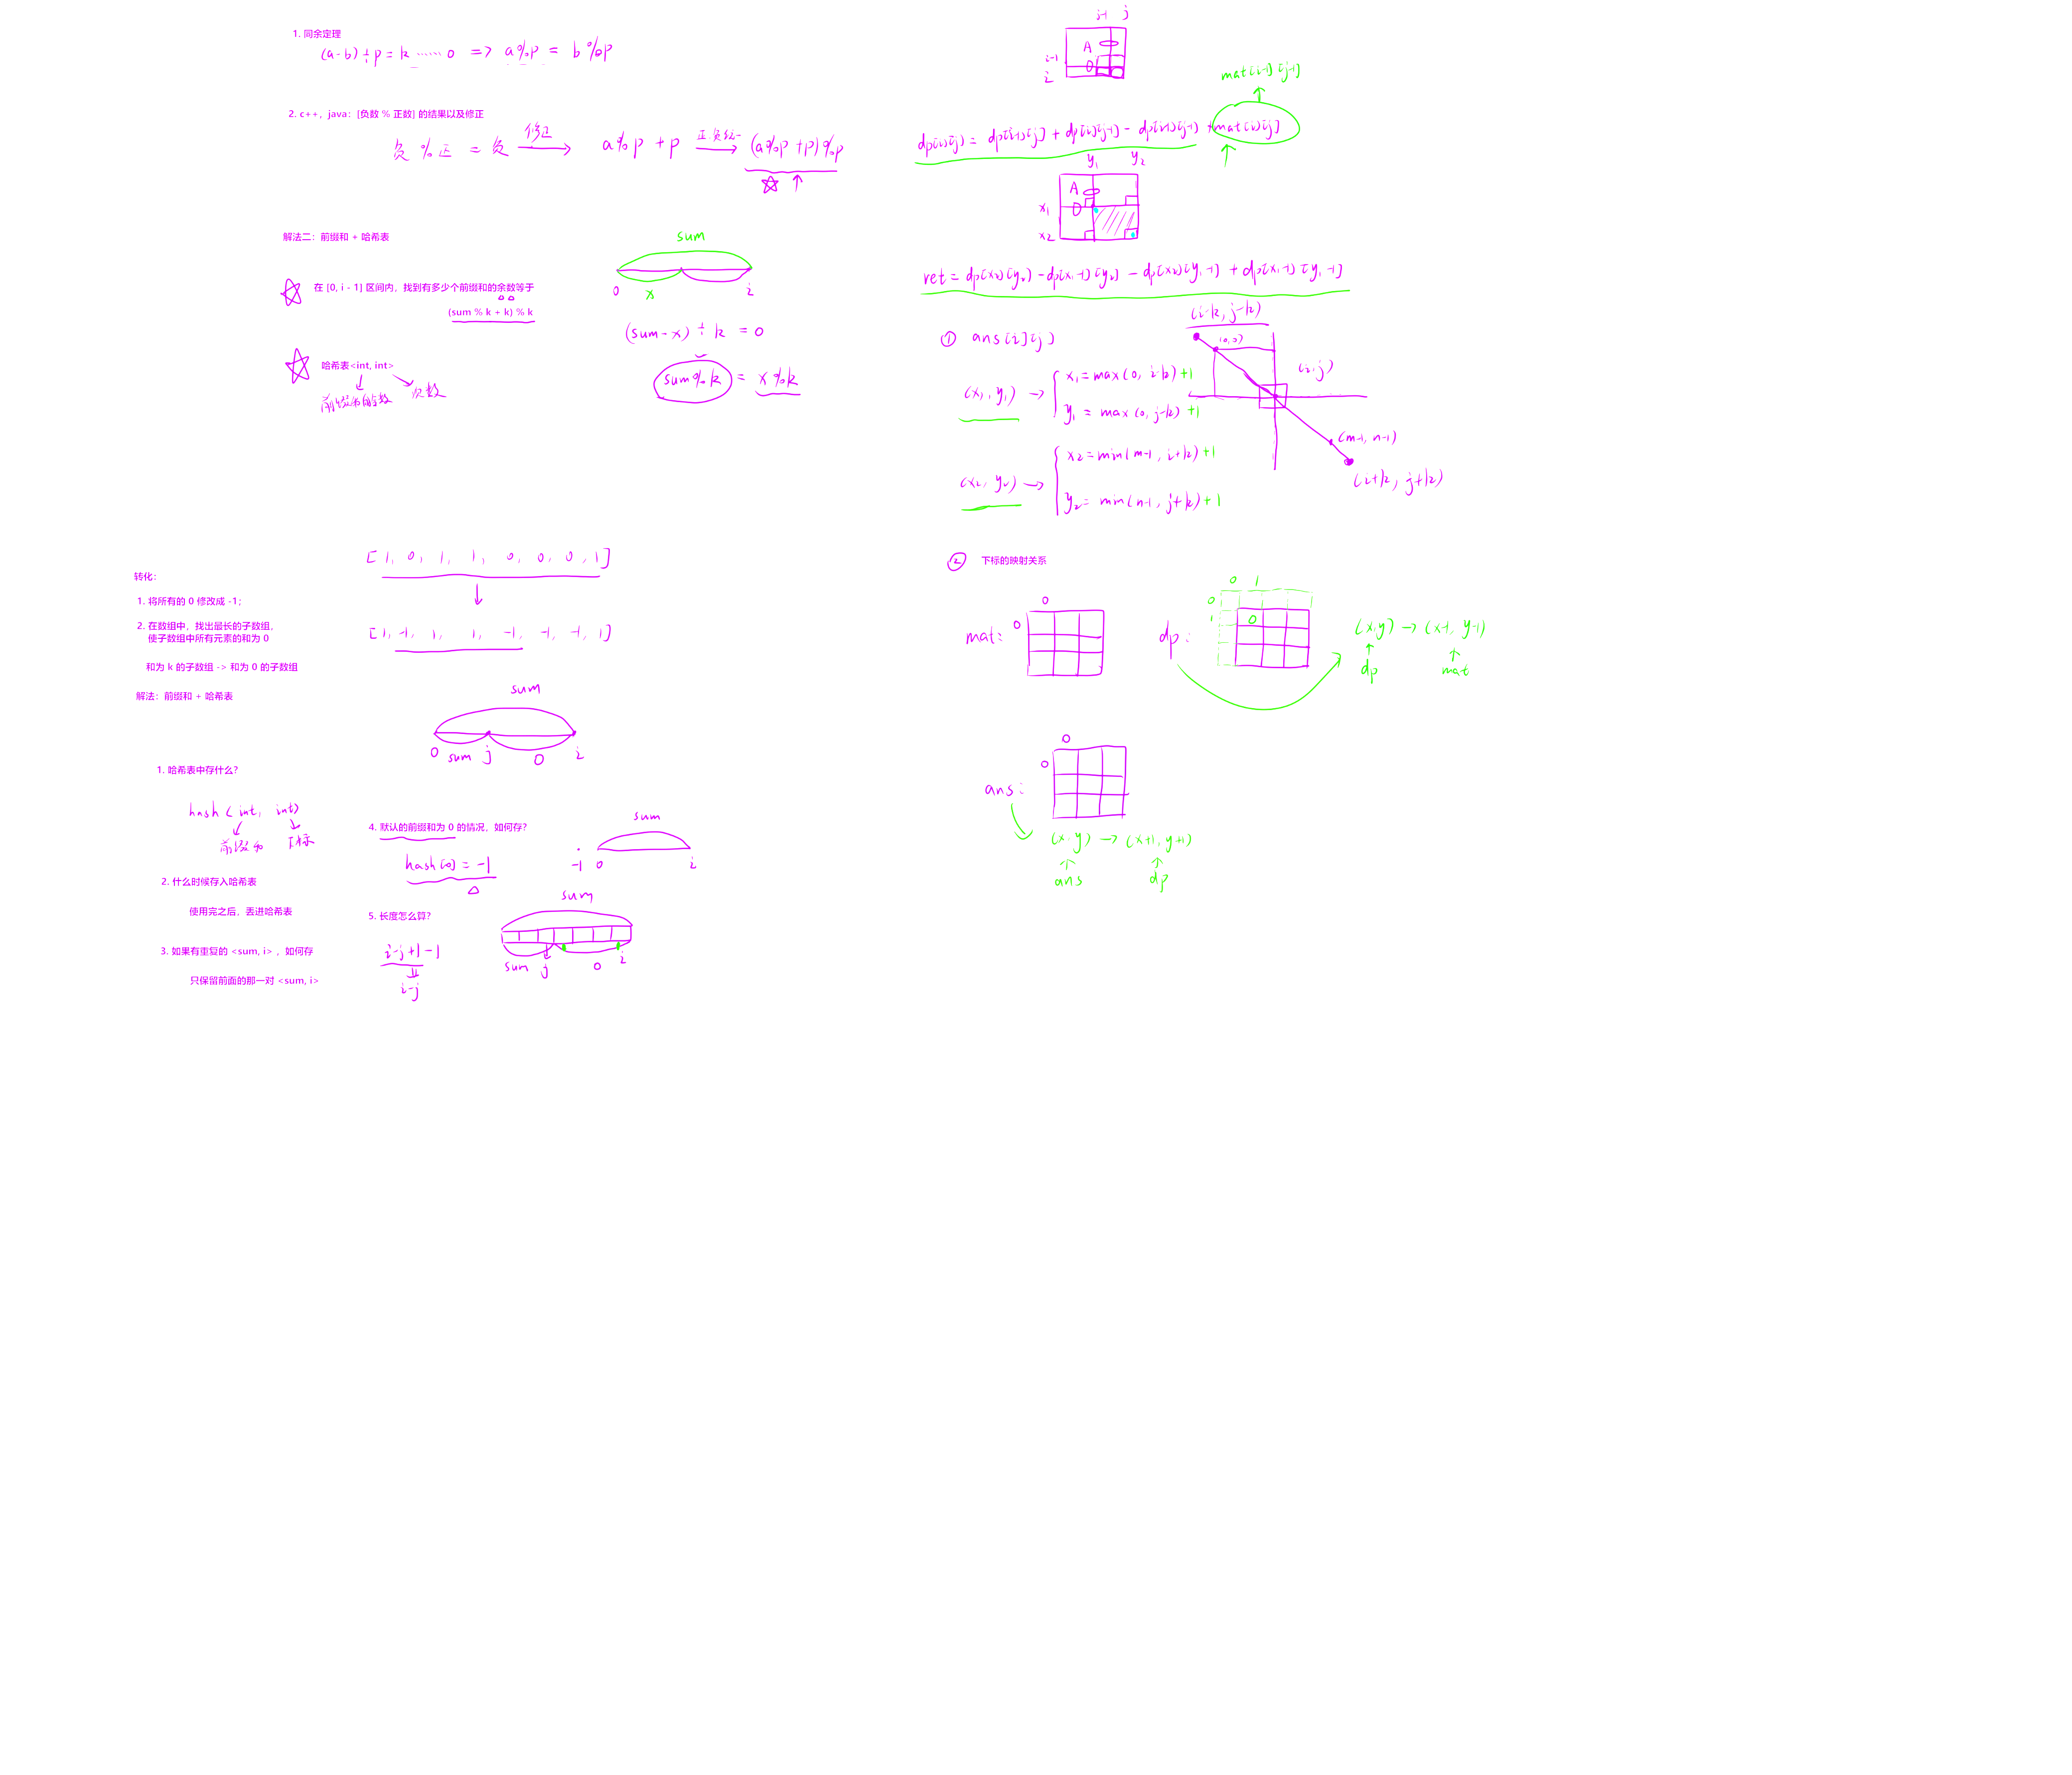 1. 同余定理
(a-b) ÷ p = k ...... 0 => a%p = b%p
2. c++，java：[负数 % 正数] 的结果以及修正
负 % 正 = 负 修正→ a%p + p 正负统一→ (a%p + p)%p
解法二：前缀和 + 哈希表
在 [0, i - 1] 区间内，找到有多少个前缀和的余数等于
(sum % k + k) % k
sum
0 x i
(sum-x) ÷ k = 0
sum%k = x%k
哈希表<int, int>
前缀和的余数 次数
转化：
1. 将所有的 0 修改成 -1；
2. 在数组中，找出最长的子数组，
使子数组中所有元素的和为 0
和为 k 的子数组 -> 和为 0 的子数组
解法：前缀和 + 哈希表
[1, 0, 1, 1, 0, 0, 0, 1]
[1, -1, 1, 1, -1, -1, -1, 1]
sum
0 sum j 0 i
1. 哈希表中存什么？
hash < int, int>
前缀和 下标
2. 什么时候存入哈希表
使用完之后，丢进哈希表
3. 如果有重复的 <sum, i> ，如何存
只保留前面的那一对 <sum, i>
4. 默认的前缀和为 0 的情况，如何存？
hash[0] = -1
sum
-1 0 i
5. 长度怎么算？
i-j+1-1
i-j
sum
sum j 0 i
j-1 j
i-1
i
A
mat[i-1][j-1]
dp[i][j] = dp[i-1][j] + dp[i][j-1] - dp[i-1][j-1] + mat[i][j]
y₁ y₂
A
x₁
x₂
ret = dp[x₂][y₂] - dp[x₁-1][y₂] - dp[x₂][y₁-1] + dp[x₁-1][y₁-1]
① ans[i][j]
(x₁, y₁) → x₁ = max(0, i-k) +1
y₁ = max(0, j-k) +1
(x₂, y₂) → x₂ = min(m-1, i+k) +1
y₂ = min(n-1, j+k) +1
(i-k, j-k)
(0, 0)
(i, j)
(m-1, n-1)
(i+k, j+k)
② 下标的映射关系
mat:
0
0
dp:
0 1
0
1
0
(x, y) → (x-1, y-1)
dp mat
ans:
0
0
(x, y) → (x+1, y+1)
ans dp